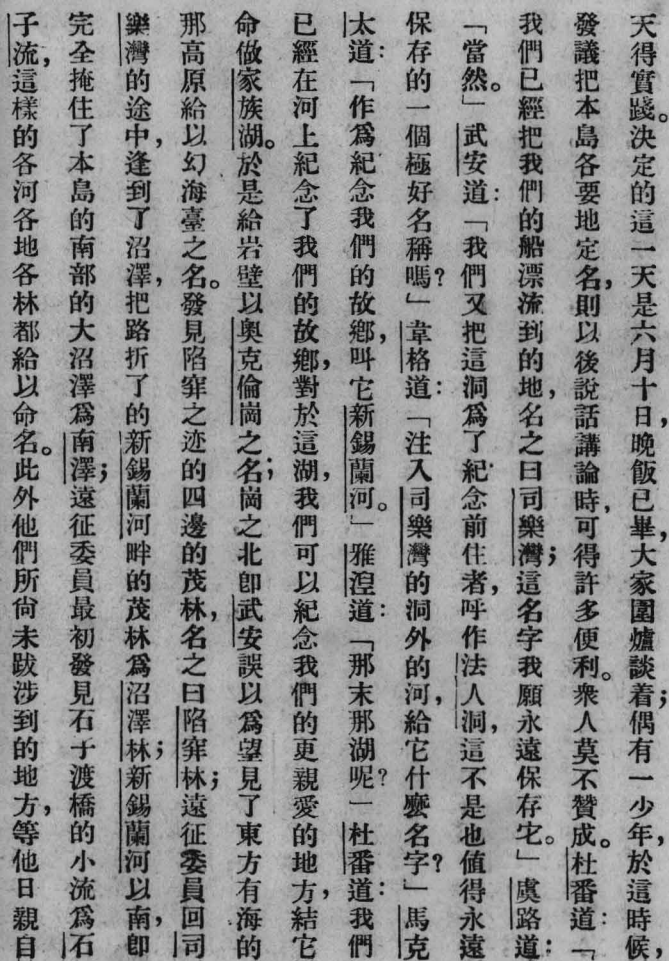 天得實踐。決定的這一天是六月十日，晚飯已畢，大家圍爐談着；偶有一少年，於這時候，
發議把本島各要地定名，則以後說話講論時，可得許多便利。衆人莫不贊成。杜番道：「
我們已經把我們的船漂流到的地，名之曰司樂灣；這名字我願永遠保存它。」虞路道：
「當然。」武安道：「我們又把這洞爲了紀念前住者，呼作法人洞，這不是也値得永遠
保存的一個極好名稱嗎？」韋格道：「注入司樂灣的洞外的河，給它什麼名字？」馬克
太道：「作爲紀念我們的故鄉，叫它新錫蘭河。」雅湼道：「那末那湖呢？」杜番道：我們
已經在河上紀念了我們的故鄉，對於這湖，我們可以紀念我們的更親愛的地方，結它
命做家族湖。於是給岩壁以奧克倫崗之名；崗之北卽武安誤以爲望見了東方有海的
那高原給以幻海臺之名。發見陷穽之迹的四邊的茂林，名之曰陷穽林；遠征委員回司
樂灣的途中，逢到了沼澤，把路折了的新錫蘭河畔的茂林爲沼澤林；新錫蘭河以南，卽
完全掩住了本島的南部的大沼澤爲南澤；遠征委員最初發見石子渡橋的小流爲石
子流，這樣的各河各地各林都給以命名。此外他們所尙未跋涉到的地方，等他日親自